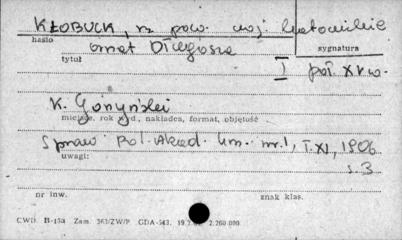 KŁOBUCK, rz. pow. woj. katowickie
hasło
ornat Długosza
sygnatura
tytuł
I poł. XV w.
K. Gónyński
miejsce, rok wyd., nakładca, format, objętość
Spraw. Pol. Akad. Um. nr. 1, T. XI, 1906
uwagi:
s. 3
nr inw. znak klas.
CWD B-13a Zam. 363/ZW/P GDA-543. 2.260.000